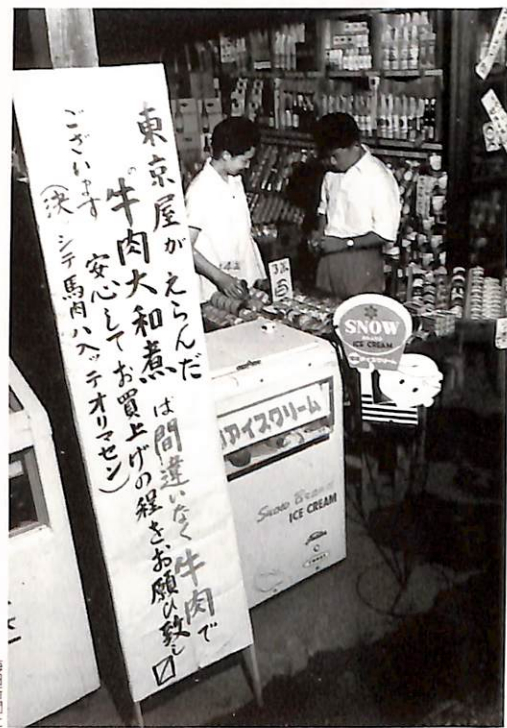 東京屋がえらんだ
“牛肉大和煮は間違いなく牛肉で
ございます
安心してお買上げの程をお願ひ致し〼
(決シテ馬肉ハ入ッテオリマセン)
SNOW
BRAND
ICE CREAM
アイスクリーム
アイスクリーム
Snow Brand
ICE CREAM